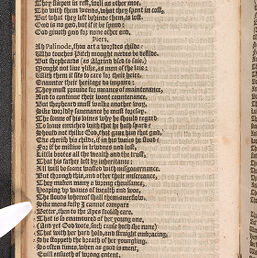 They slepen in rest, well as other moe.
Tho with them wends, what they spent in cost,
But what they left behind them, is lost.
Good is no good, but if it be spend:
God giveth good for none other end.
Piers.
Ah Palinodie, thou art a worldes childe:
Who touches Pitch mought needes be defilde.
But shepheards (as Algrind used to say,)
Mought not live ylike, as men of the laye:
With them it sits to care for their heire,
Enaunter their heritage doe impaire:
They must provide for meanes of maintenaunce,
And to continue their wont countenaunce.
But shepheard must walke another way,
Sike worldly sovenance he must foresay.
The sonne of his loines why should he regard
To leave enriched with that he hath spard?
Should not thilke God, that gave him that good,
Eke cherish his child, if in his wayes he stood?
For if he mislive in leudnes and lust,
Little bootes all the wealth and the trust,
That his father left by inheritaunce:
All will be soone wasted with misgovernaunce.
But through this, and other their miscreaunce,
They maken many a wrong chevisaunce,
Heaping up waves of wealth and woe,
The floods whereof shall them overflowe.
Sike mens follie I cannot compare
Better, then to the Apes foolish care,
That is so enamoured of her young one,
(And yet God wote, such cause hath she none)
That with her hard hold, and straight embracing,
She stoppeth the breath of her youngling.
So often times, when as good is meant,
Evil ensueth of wrong entent.